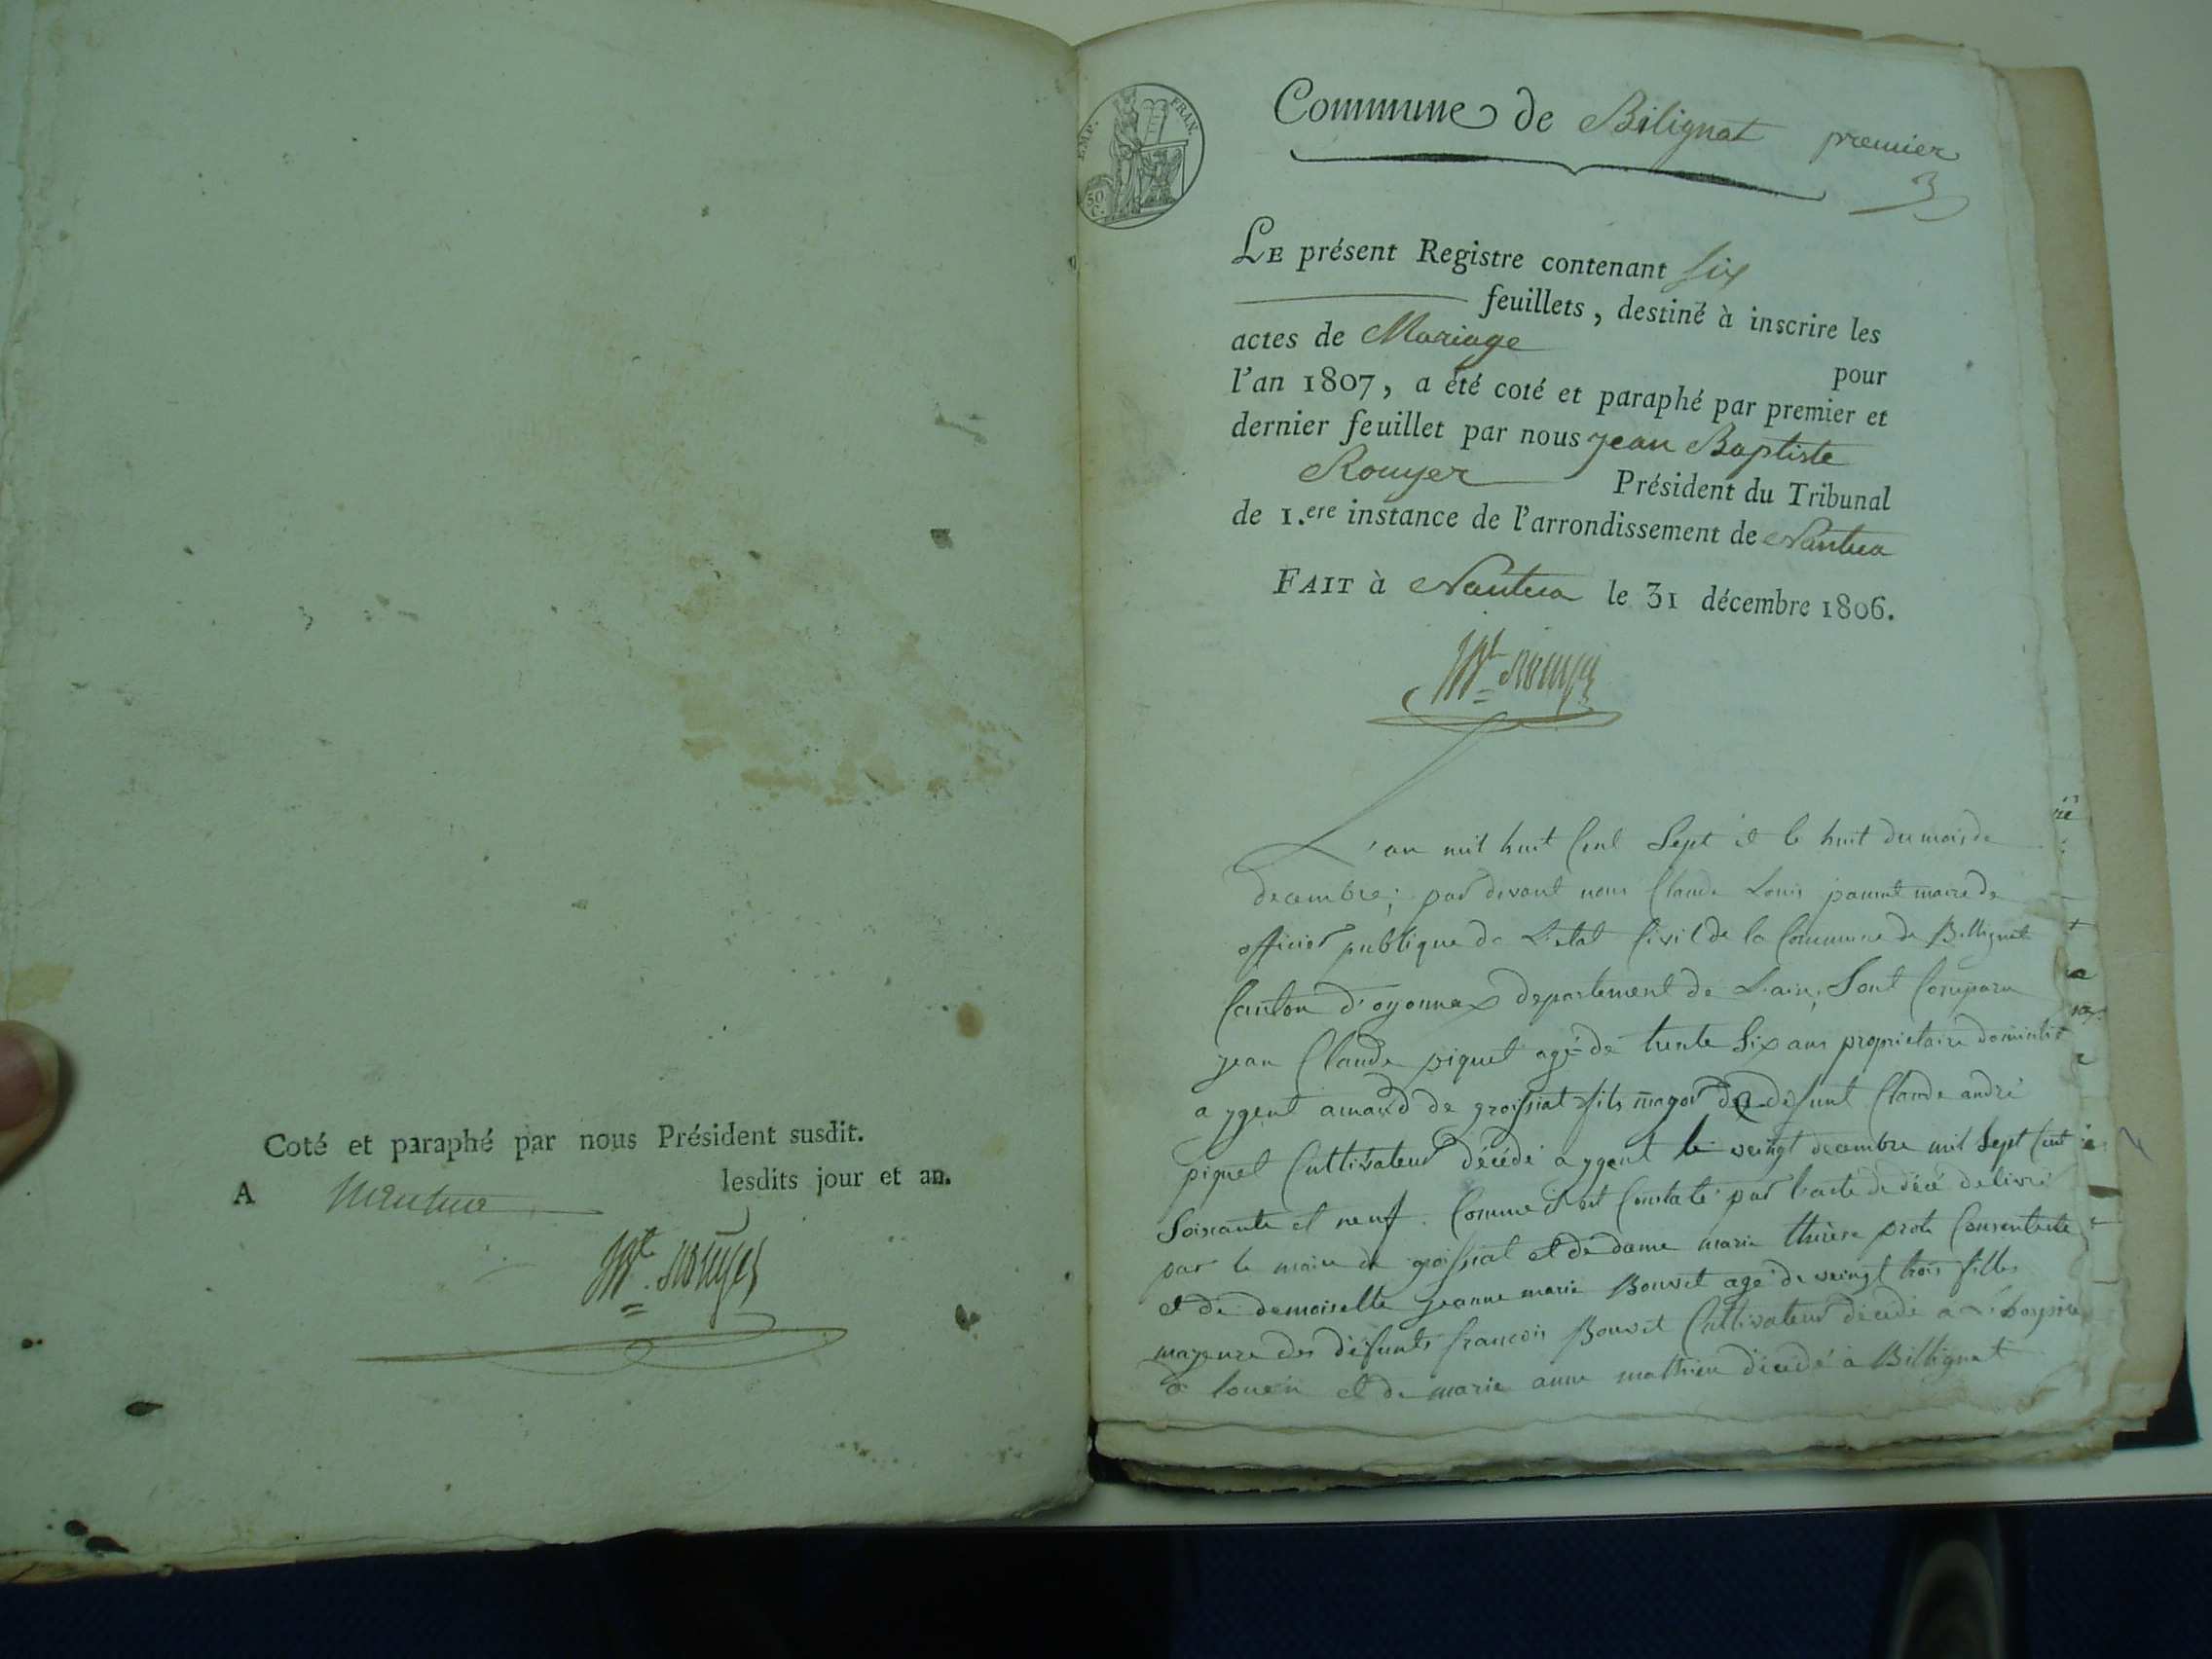 Coté et paraphé par nous Président susdit.
A Nantua lesdits jour et an.
Bte. Rouyer
EMP. FRAN.
50 C.
Commune de Bilignat premier
3
LE présent Registre contenant six
feuillets, destiné à inscrire les
actes de Mariage pour
l'an 1807, a été coté et paraphé par premier et
dernier feuillet par nous jean Baptiste
Rouyer Président du Tribunal
de 1.ere instance de l'arrondissement de Nantua
FAIT à Nantua le 31 décembre 1806.
Bte. Rouyer
L'an mil huit Cent Sept et le huit du mois de
decembre; par devant nous Claude Louis maire
officier publique de L'etat Civil de la Commune de Billignat
Canton d'oyonnax departement de L'ain, Sont Comparu
jean Claude piquet agé de trente Six ans proprietaire domicilié
a ygent de groissiat fils majeur de defunt Claude andré
piquet Cultivateur décédé a ygent le veingt decembre mil Sept Cent
Soixante et neuf. Comme il est Constaté par l'acte de décé delivré
par le maire de groissiat et de dame marie therèse
et de demoiselle jeanne marie Bouvet agé de veingt trois fille
mageure des défunts francois Bouvet Cultivateur décédé a
et de marie anne mathieu décédé à Billignat